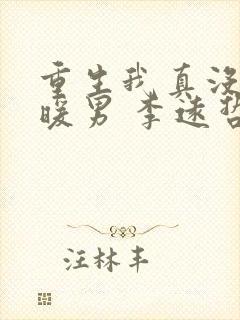 重生我真没
暖男 李逑哲
汪林丰